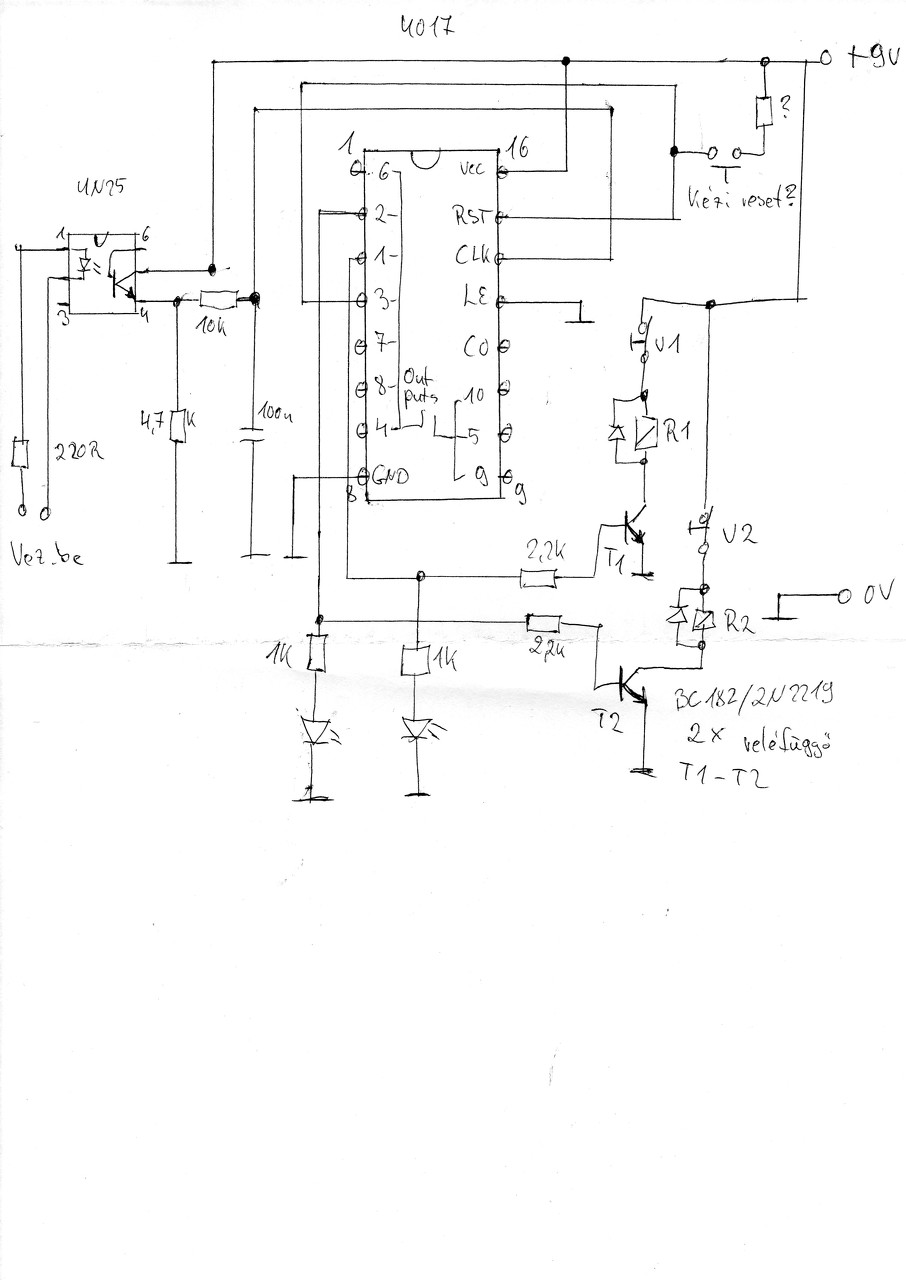 4017
+9V
?
Kézi reset?
1
16
6
Vcc
2-
RST
1-
CLK
3-
LE
7-
CO
8-
Out
puts
10
4-
5
GND
9
8
9
4N25
1
6
3
4
10K
4,7 K
100n
220R
Vez.be
V1
R1
T1
2,2K
V2
R2
0V
2,2K
T2
1K
1K
BC182/2N2219
2x reléfüggő
T1-T2